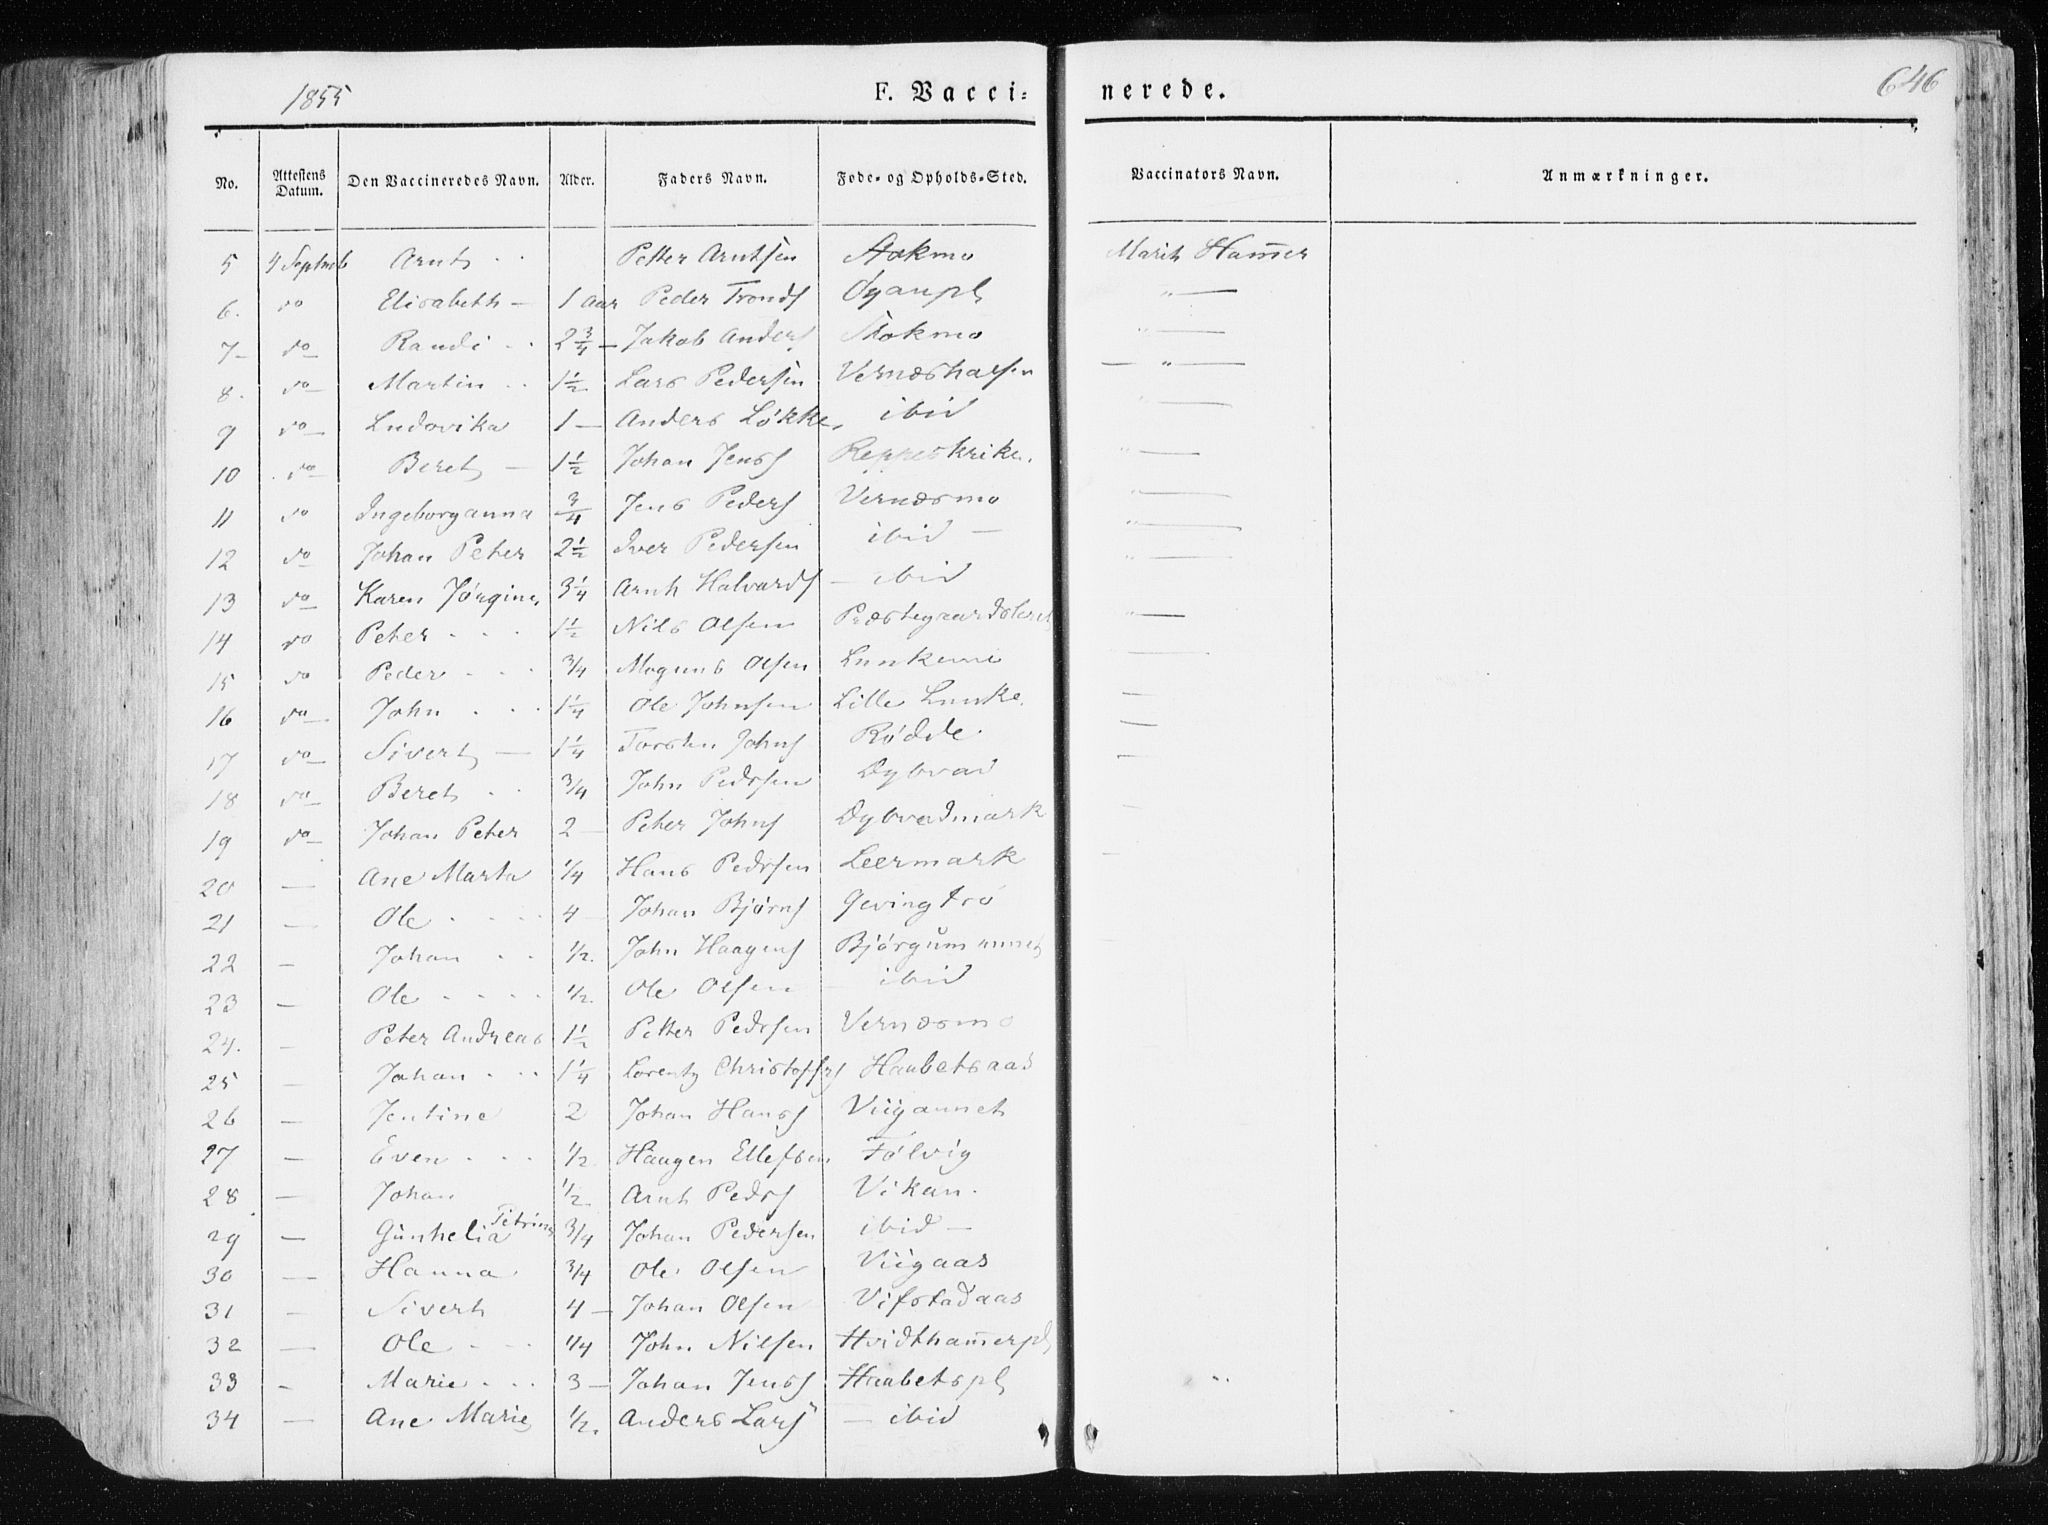 1855 F. Vacci= nerede. 646
No. Attestens Datum. Den Vaccineredes Navn. Alder. Faders Navn. Føde= og Opholds=Sted. Vaccinators Navn. Anmærkninger.
5 4 Septmb Arnt Petter Arntsen Stokmo Marit Ham̅er
6. do Elisabeth — 1 aar Peder Tronds Øyanpl "—
7 — do Randi 2 3/4 — Jakob Anders Stokmo "—
8. do Martin 1 1/2 Lars Pedersen — "—
9 do Ludovika 1 — Anders Løkke, ibid "—
10 do Beret — 1 1/2 Johan Jens Reppeskrike. "—
11 do Ingeborganna 3/4 Jens Peders Vernæsmo "—
12 do Johan Peter 2 1/2 Iver Pedersen ibid — "—
13 do Karen Jørgine, 3 1/4 Arnt Halvards — ibid "—
14 do Peter 1 1/2 Nils Olsen "—
15 do Peder 3/4 Mogens Olsen —
16 do John 1 1/4 Ole Johnsen Lille Lunke. —
17 do Sivert — 1 1/4 Torsten Johns Rødde —
18 do Beret 3/4 John Pedrsen Dybvad —
19 do Johan Peter 2 — Peter Johns Dybvadmark —
20 — Ane Marta 1/4 Hans Pedrsen Leermark —
21 — Ole 4 — Johan Bjørns Gevingtrø
22 — Johan 1/2. John Haagens
23 — Ole 1/2. Ole Olsen — ibid
24. — Peter Andreas 1 1/2 Petter Pedrsen Vernæsmo
25 — Johan 1 1/4 Lorentz Christoffrs Haabetsaas
26 — Jentine 2 Johan Hans
27 — Even 1/2. Haagen Ellefsen Følvig
28 — Johan 1/2. Arnt Pedrs Vikan.
29 — Gunhelia Petrine 3/4 Johan Pedersen ibid —
30 — Hanna 3/4 Ole Olsen Viigaas
31 — Sivert 4 — Johan Olsen Vifstadaas
32 — Ole 1/4 John Nilsen Hvidtham̅erpl
33 — Marie 3 — Johan Jens Haabetspl
34 — Ane Marie 1/2. Anders Lars — ibid